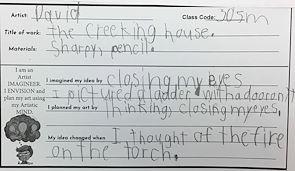 Artist: David Class Code: 305m
Title of work: the creeking house.
Materials: Sharpy, pencil.
I am an
Artist
IMAGINEER.
I ENVISION and
plan my art using
my Artistic
MIND.
I imagined my idea by closing my eyes
I pictured a ladder with a door on it
I planned my art by thinking, closing my eyes.
My idea changed when I thought of the fire
on the torch.